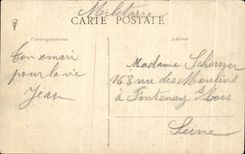 Militaire
CARTE POSTALE
Correspondance
Ton mari
pour la vie
Jean
Madame
168 rue des Moulins
à Fontenay s/Bois
Seine